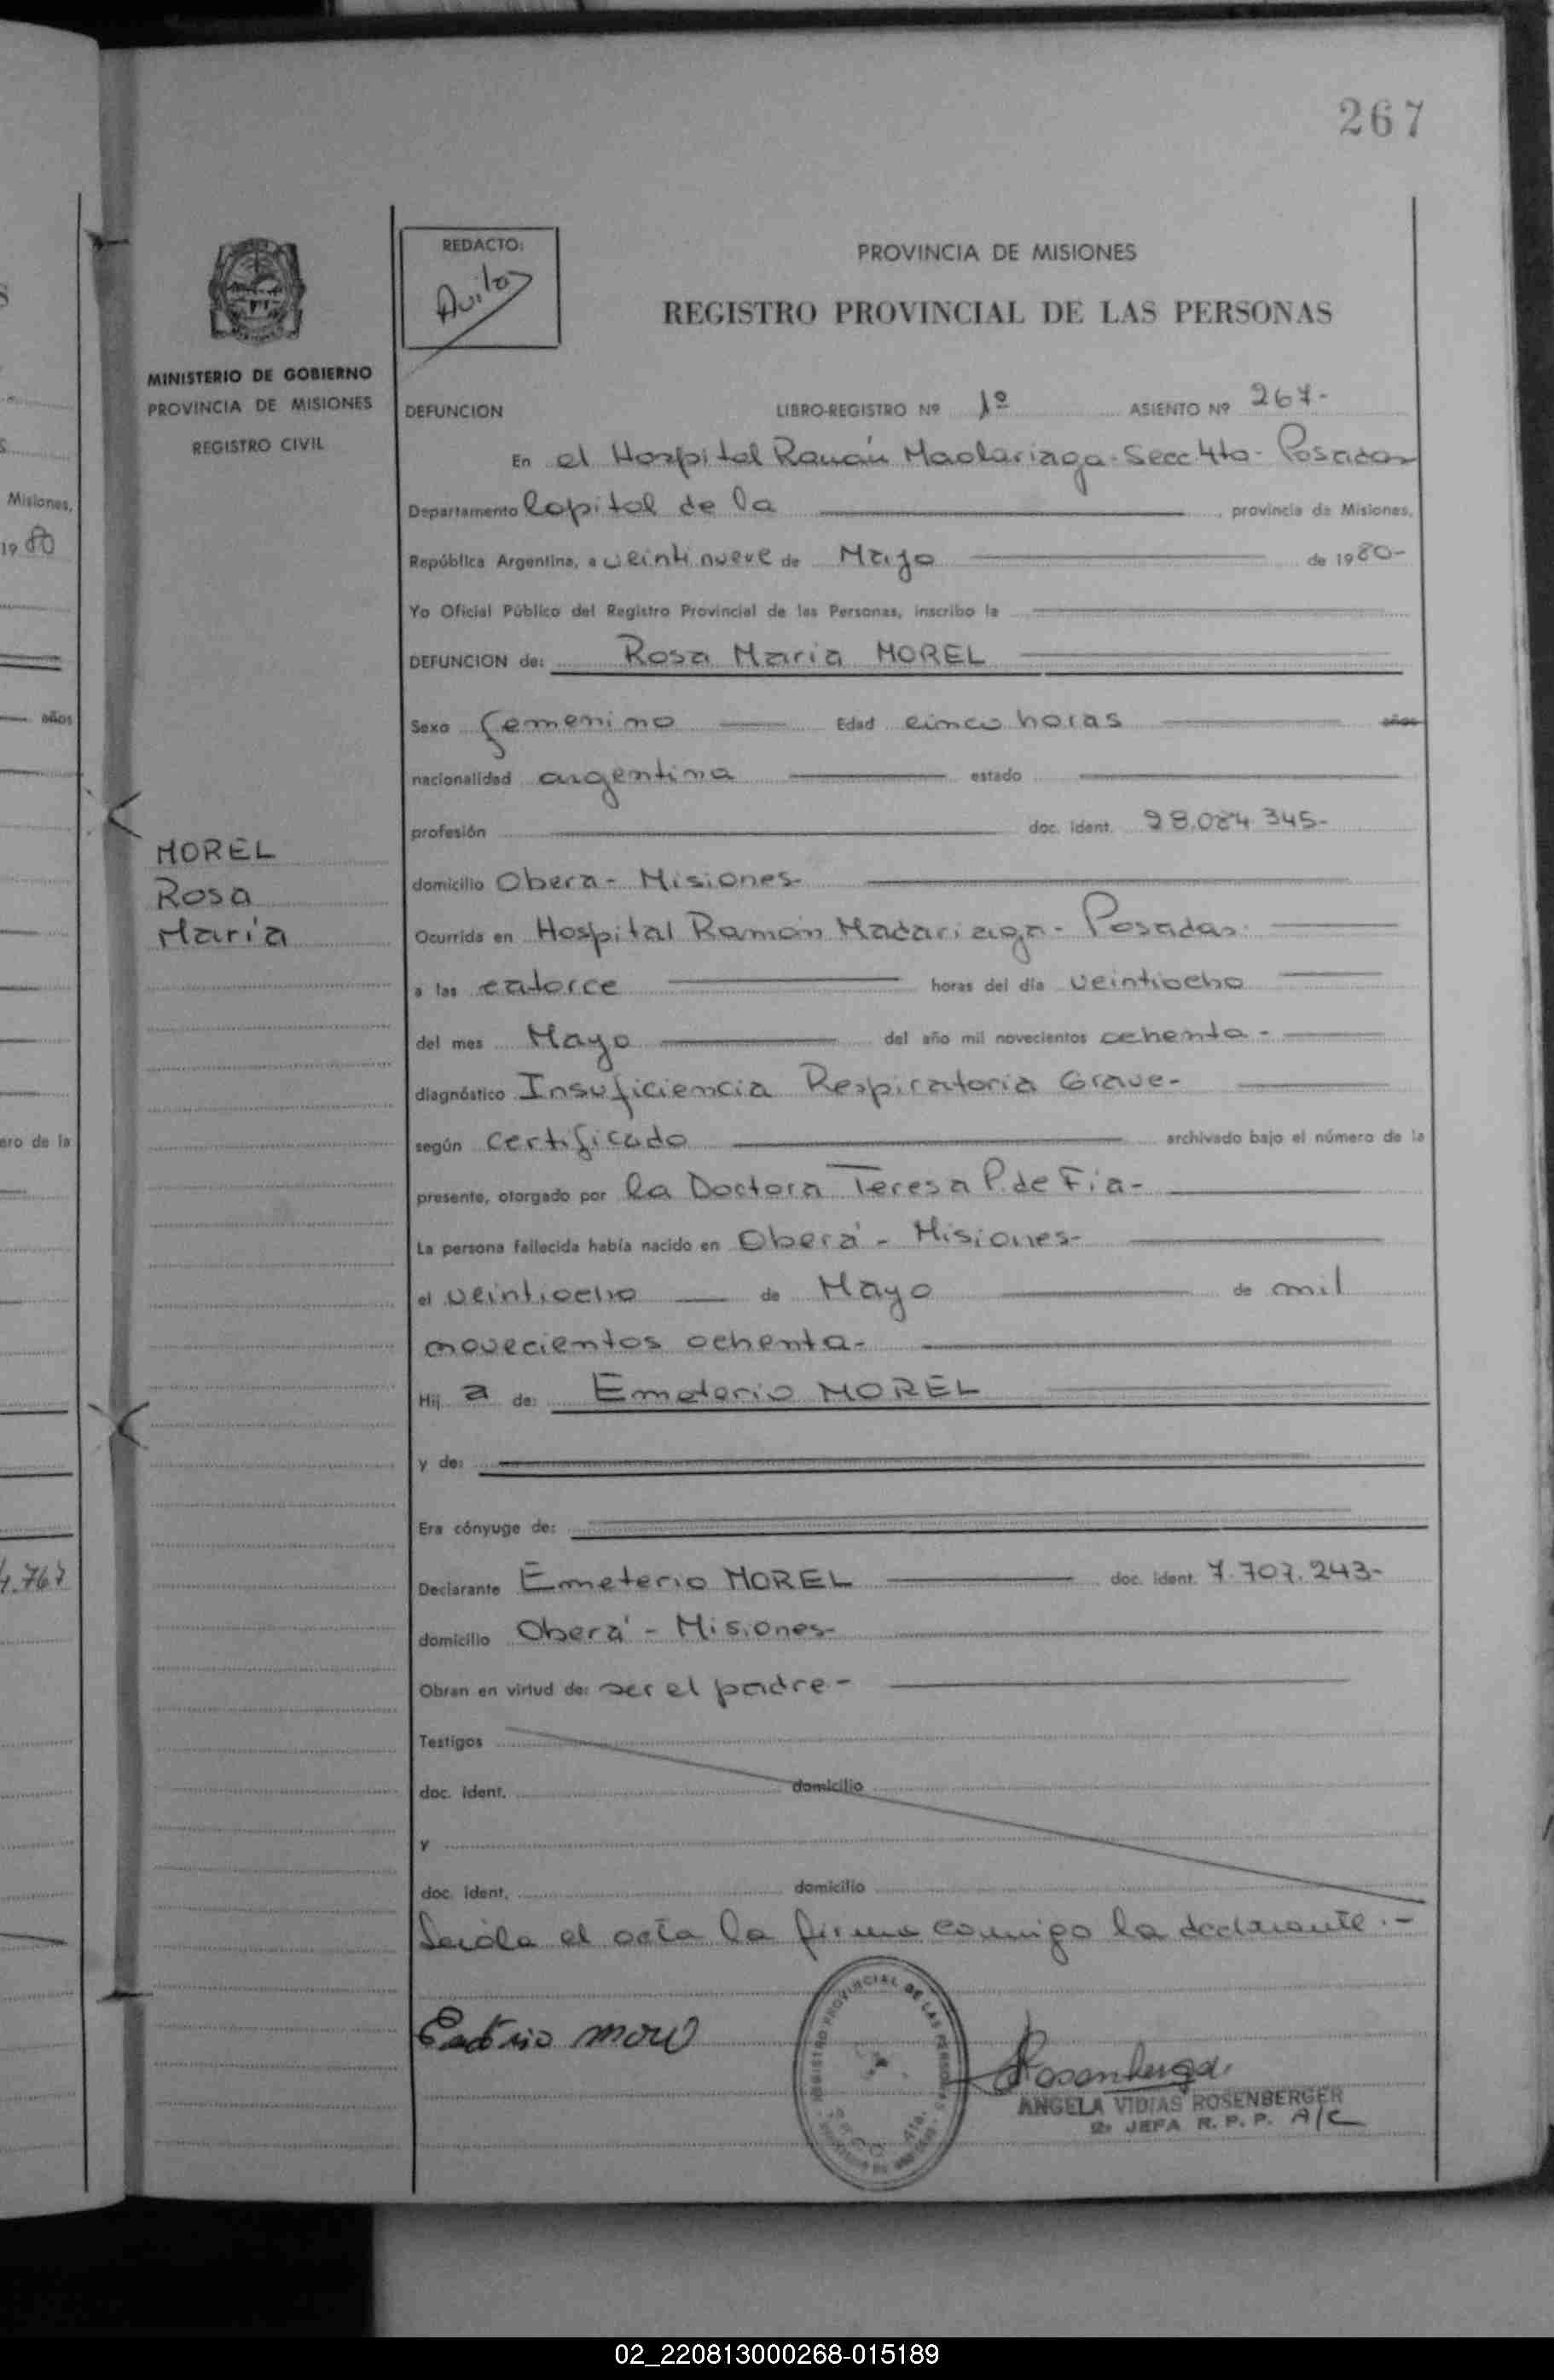 267
REDACTO:
Avila
PROVINCIA DE MISIONES
REGISTRO PROVINCIAL DE LAS PERSONAS
MINISTERIO DE GOBIERNO
PROVINCIA DE MISIONES
REGISTRO CIVIL
DEFUNCION LIBRO-REGISTRO Nº 1º ASIENTO Nº 267-
En el Hospital Ramón Madariaga-Secc 4ta- Posadas
Departamento Capital de la , provincia de Misiones,
República Argentina, a veintinueve de Mayo de 1980-
Yo Oficial Público del Registro Provincial de las Personas, inscribo la
DEFUNCION de: Rosa Maria MOREL
Sexo femenino Edad cinco horas años
nacionalidad argentina estado
profesión doc. ident. 28.084.345-
MOREL
Rosa
María
domicilio Obera- Misiones-
Ocurrida en Hospital Ramón Madariaga- Posadas.
a las catorce horas del día veintiocho
del mes Mayo del año mil novecientos ochenta-
diagnóstico Insuficiencia Respiratoria Grave-
según certificado archivado bajo el número de la
presente, otorgado por la Doctora Teresa P. de Fia-
La persona fallecida había nacido en Oberá - Misiones-
el veintiocho de Mayo de mil
novecientos ochenta-
Hij a de: Emeterio MOREL
y de:
Era cónyuge de:
Declarante Emeterio MOREL doc. ident. 7.707.243-
domicilio Oberá - Misiones-
Obran en virtud de: ser el padre-
Testigos
doc. ident. domicilio
y
doc. ident. domicilio
Leida el acta la firma conmigo la declarante.-
REGISTRO PROVINCIAL DE LAS PERSONAS
Rosenberger
ANGELA VIDIAS ROSENBERGER
2º JEFA R. P. P. A/C
Misiones,
1980
años
ero de la
4.767
02_220813000268-015189